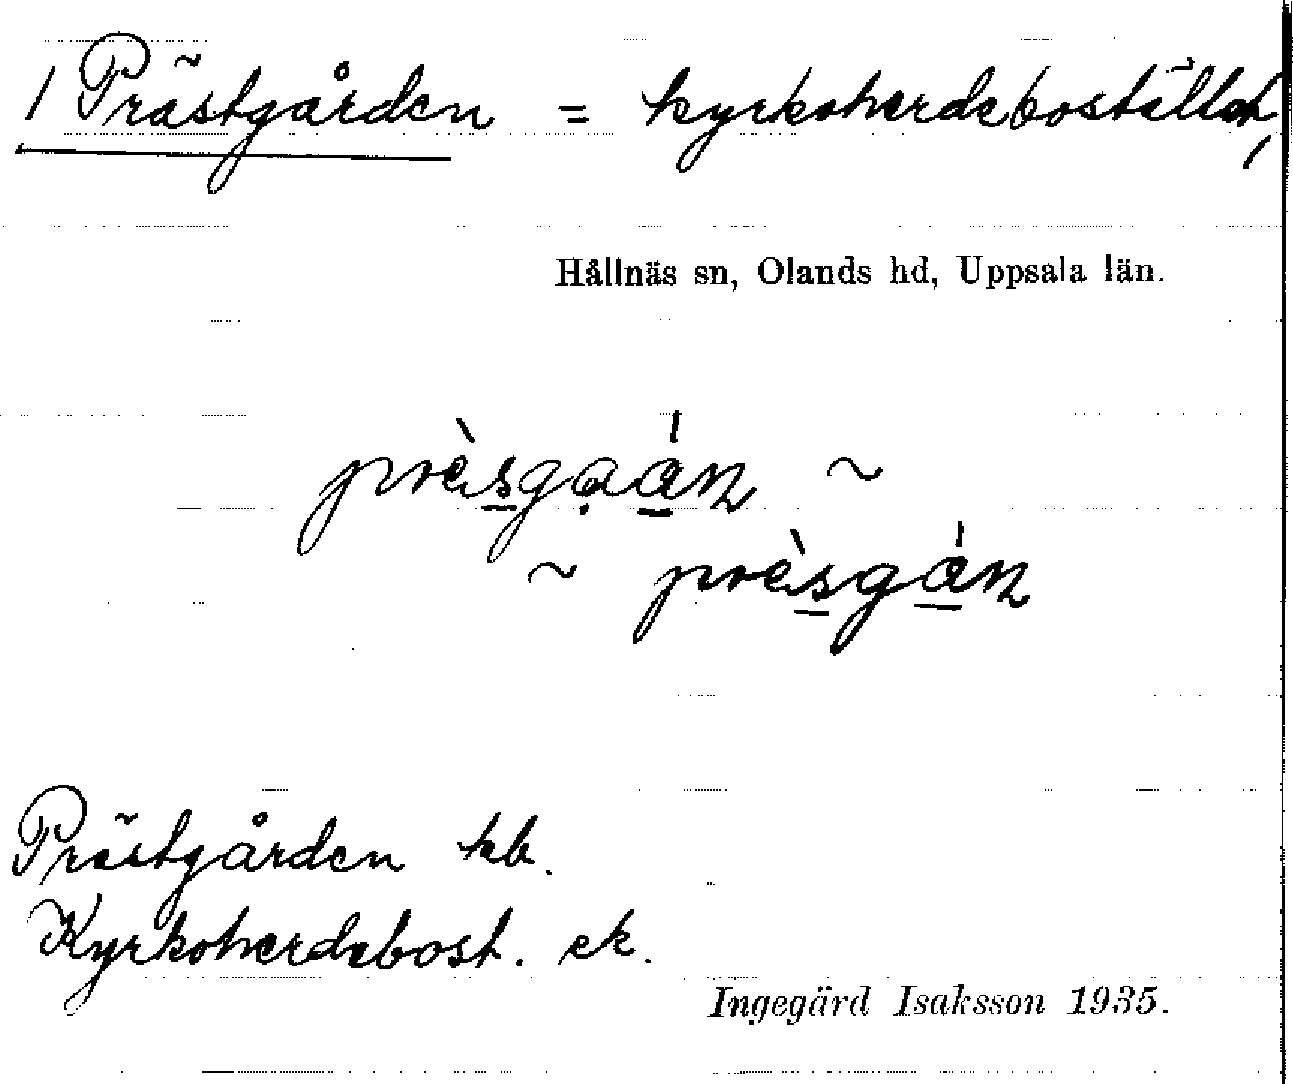 1 Prästgården = kyrkoherdebostället,
Hållnäs sn, Olands hd, Uppsala län.
prèsgaán ~
~ prèsgán
Prästgården kb.
Kyrkoherdebost. ek.
Ingegärd Isaksson 1935.